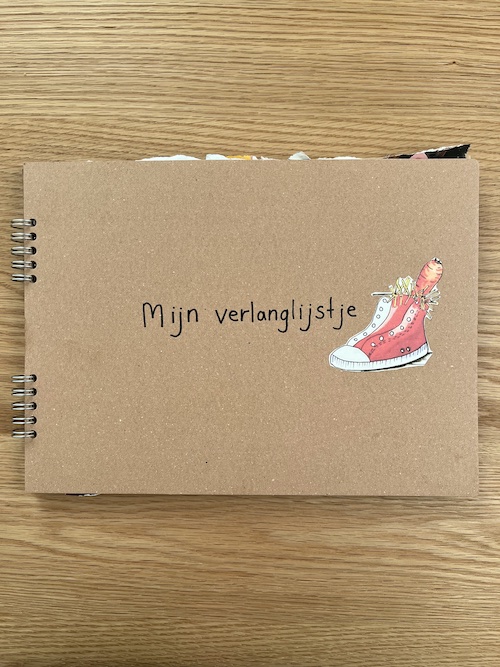 Mijn verlanglijstje